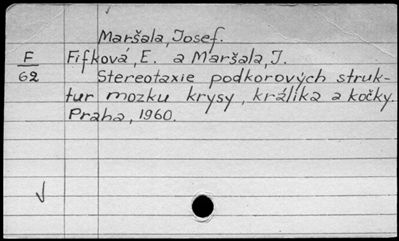 Maršala, Josef.
F Fifková, E. a Maršala, J.
62 Stereotaxie podkorových struk-
tur mozku krysy, králíka a kočky.
Praha, 1960.